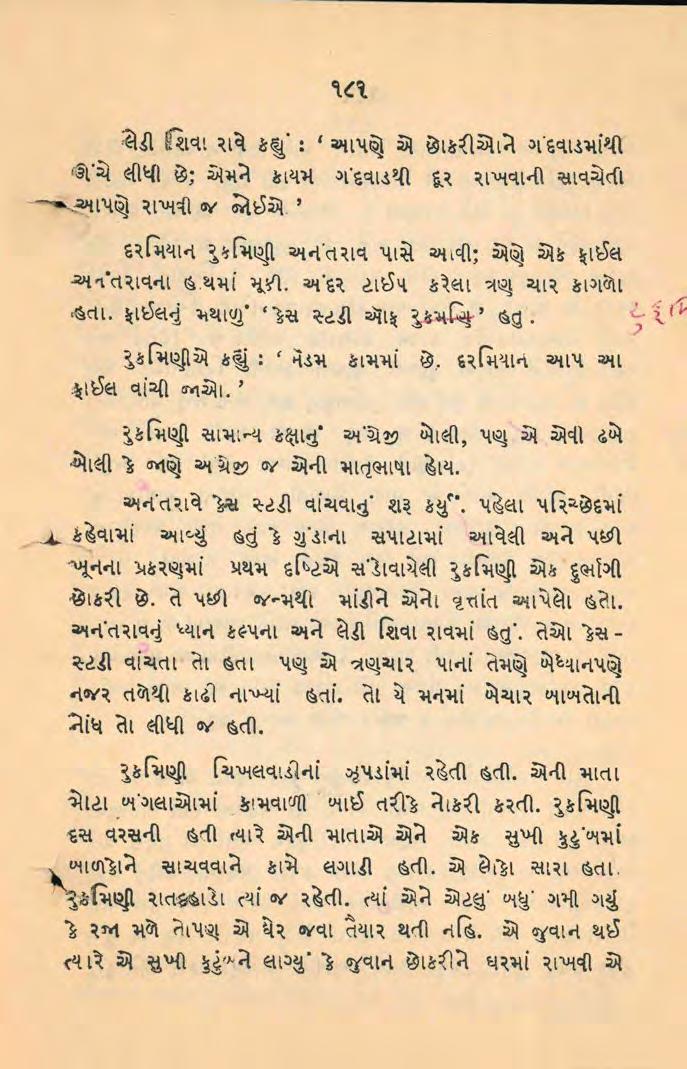 ૧૮૧
લેડી શિવા રાવે કહ્યું : ‘ આપણે એ છોકરીઓને ગંદવાડમાંથી
ઊંચે લીધી છે; એમને કાયમ ગંદવાડથી દૂર રાખવાની સાવચેતી
આપણે રાખવી જ જોઈએ ’
દરમિયાન રુકમિણી અનંતરાવ પાસે આવી; એણે એક ફાઈલ
અનંતરાવના હાથમાં મૂકી. અંદર ટાઈપ કરેલા ત્રણ ચાર કાગળો
હતા. ફાઈલનું મથાળું ‘ કેસ સ્ટડી ઑફ રુકમણિ ’ હતુ .
રુકમિણીએ કહ્યું : ‘ મૅડમ કામમાં છે. દરમિયાન આપ આ
ફાઈલ વાંચી જાઓ. ’
રુકમિણી સામાન્ય કક્ષાનું અંગ્રેજી બોલી, પણ એ એવી ઢબે
બોલી કે જાણે અંગ્રેજી જ એની માતૃભાષા હોય.
અનંતરાવે કેસ સ્ટડી વાંચવાનું શરૂ કર્યું. પહેલા પરિચ્છેદમાં
કહેવામાં આવ્યું હતું કે ગુંડાના સપાટામાં આવેલી અને પછી
ખૂનના પ્રકરણમાં પ્રથમ દૃષ્ટિએ સંડોવાયેલી રુકમિણી એક દુર્ભાગી
છોકરી છે. તે પછી જન્મથી માંડીને એનો વૃત્તાંત આપેલો હતો.
અનંતરાવનું ધ્યાન કલ્પના અને લેડી શિવા રાવમાં હતું. તેઓ કેસ -
સ્ટડી વાંચતા તો હતા પણ એ ત્રણચાર પાનાં તેમણે બેધ્યાનપણે
નજર તળેથી કાઢી નાખ્યાં હતાં. તો યે મનમાં બેચાર બાબતોની
નોંધ તો લીધી જ હતી.
રુકમિણી ચિખલવાડીનાં ઝૂપડાંમાં રહેતી હતી. એની માતા
મોટા બંગલાઓમાં કામવાળી બાઈ તરીકે નોકરી કરતી. રુકમિણી
દસ વરસની હતી ત્યારે એની માતાએ એને એક સુખી કુટુંબમાં
બાળકોને સાચવવાને કામે લગાડી હતી. એ લોકો સારા હતા.
રુકમિણી રાતદહાડો ત્યાં જ રહેતી. ત્યાં એને એટલું બધું ગમી ગયું
કે રજા મળે તોપણ એ ઘેર જવા તૈયાર થતી નહિ. એ જુવાન થઈ
ત્યારે એ સુખી કુટુંબને લાગ્યું કે જુવાન છોકરીને ઘરમાં રાખવી એ